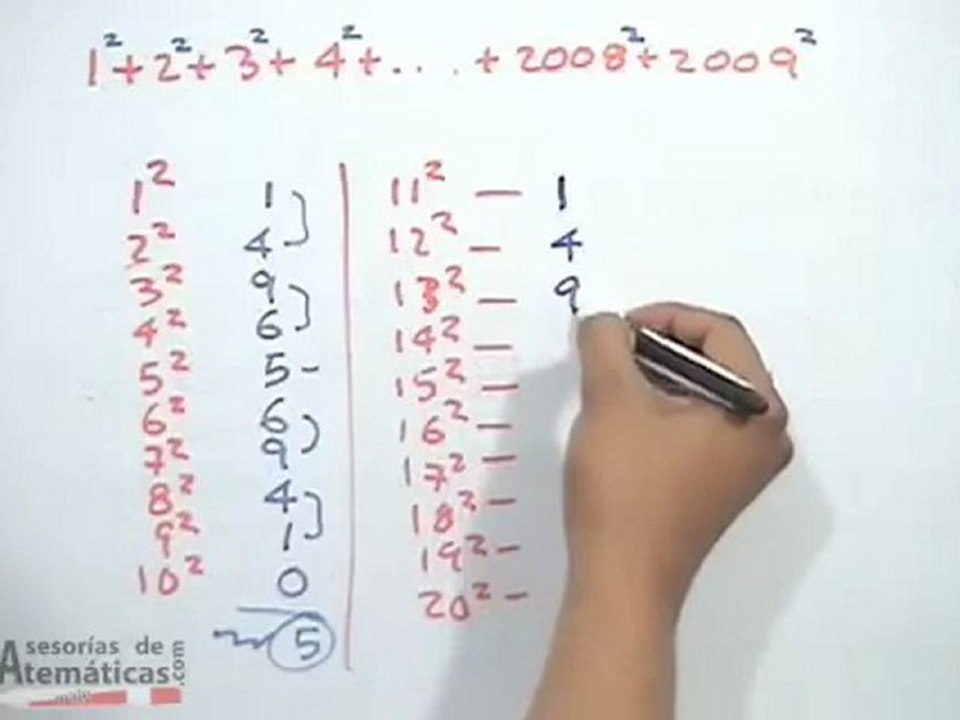 1² + 2² + 3² + 4² + . . . + 2008² + 2009²
1² 1
2² 4
3² 9
4² 6
5² 5 -
6² 6
7² 9
8² 4
9² 1
10² 0
5
11² — 1
12² — 4
13² — 9
14² —
15² —
16² —
17² —
18² —
19² —
20² —
Asesorías de
Atemáticas.com